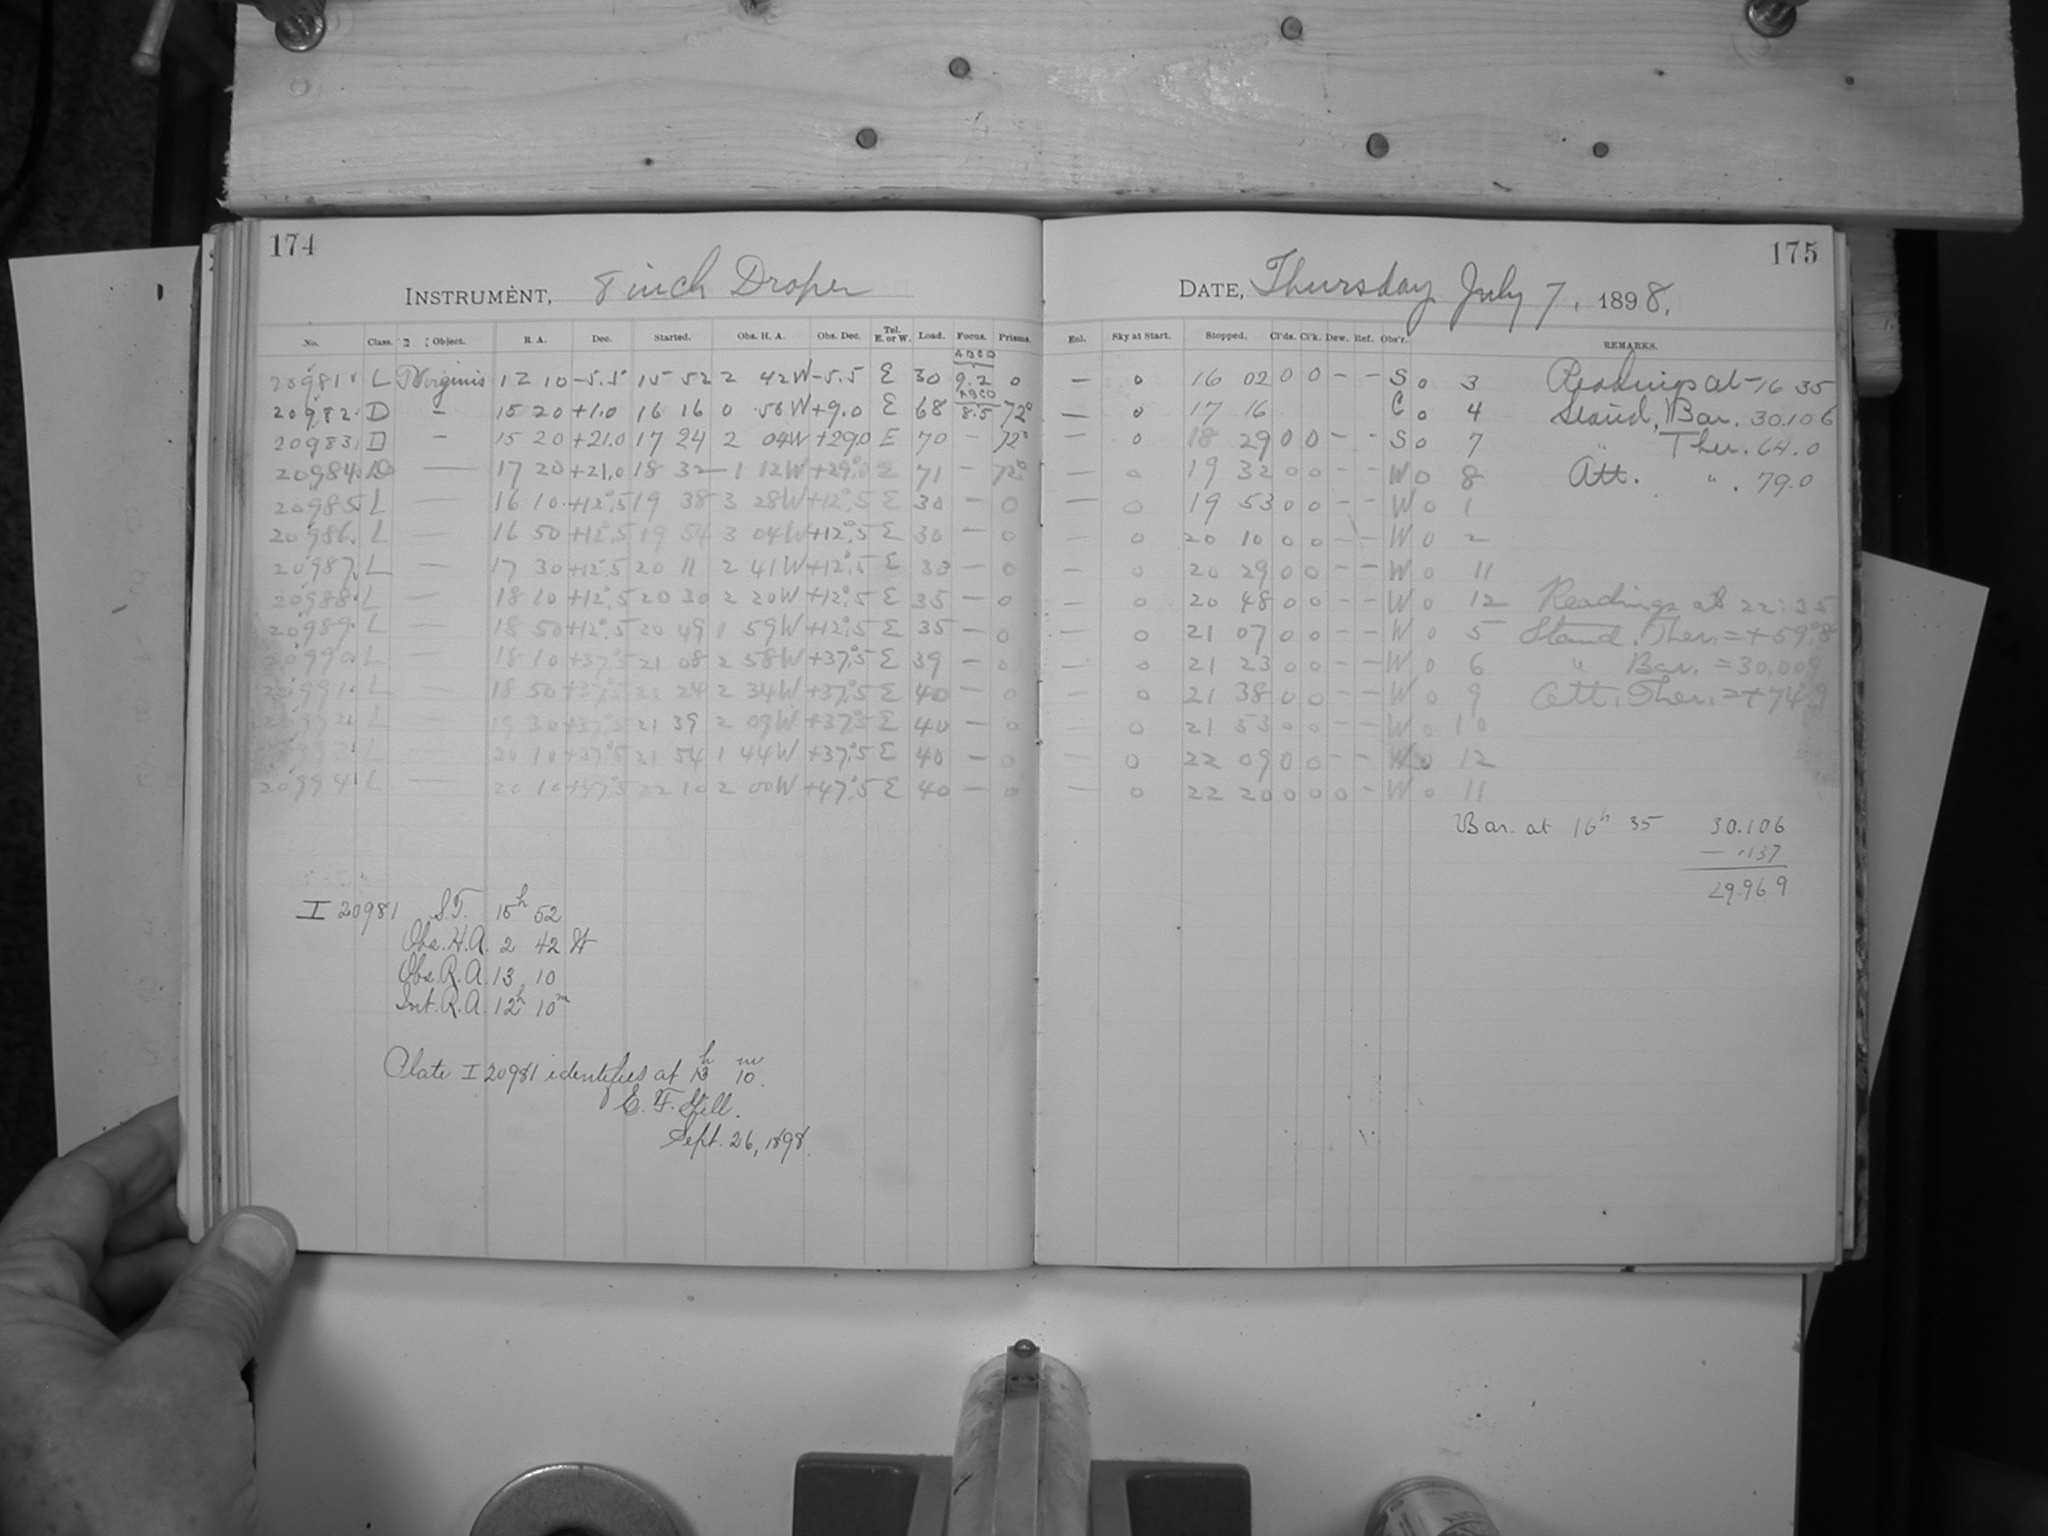 174
INSTRUMENT, 8 inch Draper
No. Class. Object. R. A. Dec. Started. Obs. H. A. Obs. Dec. Tel. E. or W. Load. Focus. Prisms.
20981 L Virginis 12 10 -5.5 15 52 2 42W -5.5 E 30 ABCD 9.2 0
20982 D — 15 20 +1.0 16 16 0 56W +9.0 E 68 ABCD 8.5 72°
20983 D — 15 20 +21.0 17 24 2 04W +29.0 E 70 — 72°
20984 D — 17 20 +21.0 18 32 1 12W +29.0 E 71 — 72°
20985 L — 16 10 +12°.5 19 38 3 28W +12°.5 E 30 — 0
20986 L — 16 50 +12°.5 19 54 3 04W +12°.5 E 30 — 0
20987 L — 17 30 +12°.5 20 11 2 41W +12°.5 E 33 — 0
20988 L — 18 10 +12°.5 20 30 2 20W +12°.5 E 35 — 0
20989 L — 18 50 +12°.5 20 49 1 59W +12°.5 E 35 — 0
20990 L — 18 10 +37°.5 21 08 2 58W +37°.5 E 39 — 0
20991 L — 18 50 +37°.5 21 24 2 34W +37°.5 E 40 — 0
L — 19 30 +37°.5 21 39 2 09W +37°.5 E 40 — 0
L — 20 10 +37°.5 21 54 1 44W +37°.5 E 40 — 0
20994 L — 20 10 +47°.5 22 10 2 00W +47°.5 E 40 — 0
I 20981 S.T. 15h 52
Obs. H.A. 2 42 W
Obs. R.A. 13 10
Int. R.A. 12h 10m
Plate I 20981 identifies at 13h 10m.
E. F. Gill.
Sept. 26, 1898.
175
DATE, Thursday July 7, 1898.
Enl. Sky at Start. Stopped. Cl'ds. Cl'k. Dew. Ref. Obs'r. REMARKS.
— 0 16 02 0 0 — — S 0 3 Readings at 16 35
— 0 17 16 C 0 4 Stand. Bar. 30.106
— 0 18 29 0 0 — — S 0 7 " Ther. 64.0
— 0 19 32 0 0 — — W 0 8 Att. " . 79.0
— 0 19 53 0 0 — — W 0 1
— 0 20 10 0 0 — — W 0 2
— 0 20 29 0 0 — — W 0 11
— 0 20 48 0 0 — — W 0 12 Readings at 22:35
— 0 21 07 0 0 — — W 0 5 Stand. Ther. = +59°.8
— 0 21 23 0 0 — — W 0 6 " Bar. = 30.009
— 0 21 38 0 0 — — W 0 9 Att. Ther. = +74°.9
— 0 21 53 0 0 — — W 0 10
— 0 22 09 0 0 — — W 0 12
— 0 22 20 0 0 0 — W 0 11
Bar. at 16h 35 30.106
— .137
29.969